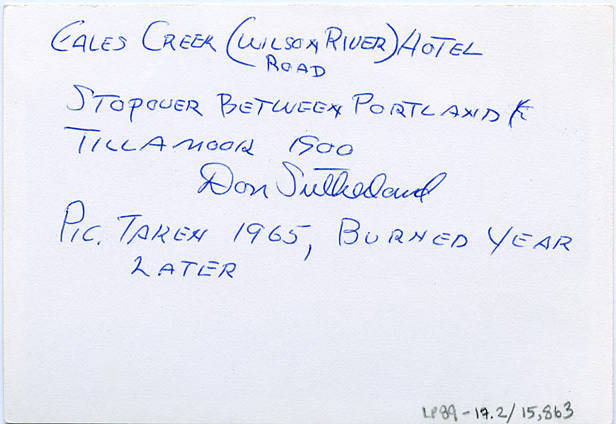 GALES CREEK (WILSON RIVER) HOTEL
ROAD
STOPOVER BETWEEN PORTLAND &
TILLAMOOK 1900
Don Sutherland
PIC. TAKEN 1965, BURNED YEAR
LATER
LP89-17.2/15,863